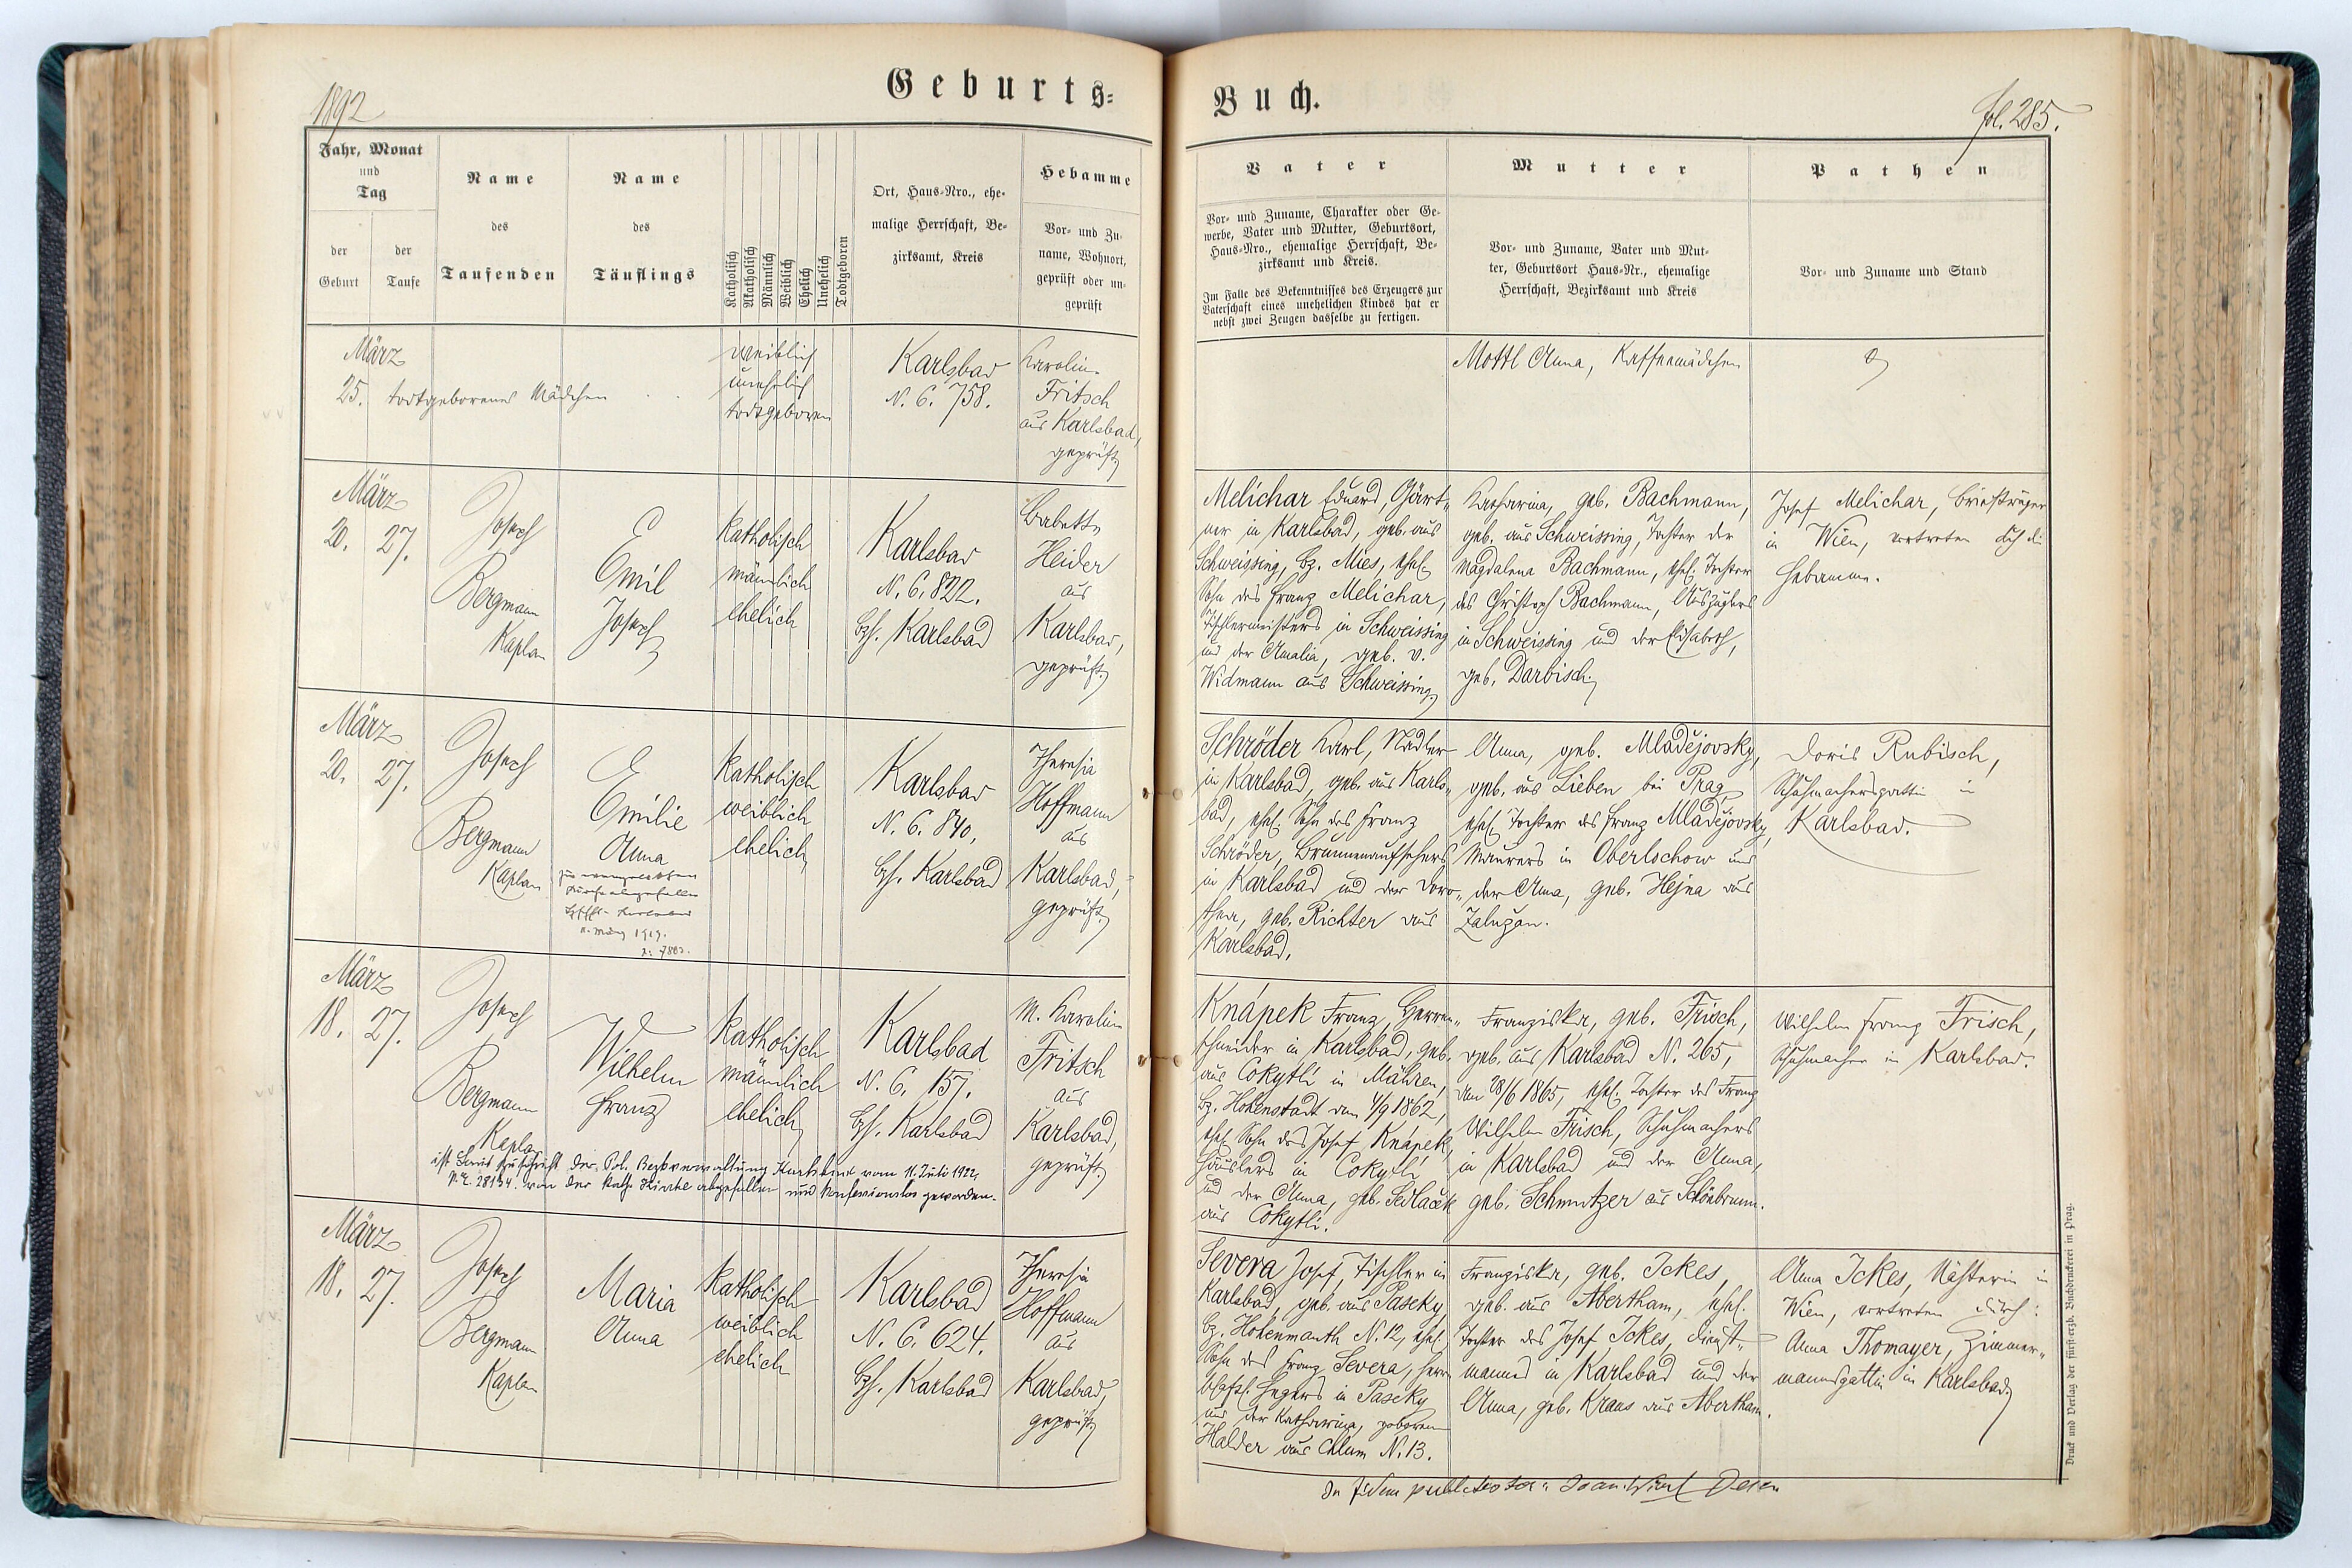 1892
Geburts=
Jahr, Monat
und
Tag
der
Geburt
der
Taufe
Name
des
Taufenden
Name
des
Täuflings
Katholisch
Akatholisch
Männlich
Weiblich
Ehelich
Unehelich
Todtgeboren
Ort, Haus=Nro., ehe=
malige Herrschaft, Be=
zirksamt, Kreis
Hebamme
Vor= und Zu=
name, Wohnort,
geprüft oder un=
geprüft
März
25.
todtgeborenes Mädchen
weiblich
unehelich
todtgeboren
Karlsbad
N. C. 758.
Karolin
Fritsch
aus Karlsbad,
geprüft
März
20. 27.
Josef
Bergmann
Kaplan
Emil
Josef
katholisch
männlich
ehelich
Karlsbad
N. C. 822.
Bzh. Karlsbad
Babette
Heider
aus
Karlsbad,
geprüft
März
20. 27.
Josef
Bergmann
Kaplan
Emilie
Anna
März 1919.
Z: 7803.
katholisch
weiblich
ehelich
Karlsbad
N. C. 840.
Bzh. Karlsbad
Theresia
Hoffmann
aus
Karlsbad,
geprüft
März
18. 27.
Josef
Bergmann
Kaplan
Wilhelm
Franz
katholisch
männlich
ehelich
Karlsbad
N. C. 157.
Bzh. Karlsbad
M. Karolin
Fritsch
aus
Karlsbad,
geprüft
ist laut Zuschrift der Pol. Bezirksverwaltung Karlsbad vom 11. Juli 1922,
N. E. 28134. von der kath. Kirche abgefallen und konfessionslos geworden.
März
18. 27.
Josef
Bergmann
Kaplan
Maria
Anna
katholisch
weiblich
ehelich
Karlsbad
N. C. 624.
Bzh. Karlsbad
Theresia
Hoffmann
aus
Karlsbad,
geprüft
Buch.
fol. 285.
Vater
Vor= und Zuname, Charakter oder Ge=
werbe, Vater und Mutter, Geburtsort,
Haus=Nro., ehemalige Herrschaft, Be=
zirksamt und Kreis.
Im Falle des Bekenntnisses des Erzeugers zur
Vaterschaft eines unehelichen Kindes hat er
nebst zwei Zeugen dasselbe zu fertigen.
Mutter
Vor= und Zuname, Vater und Mut=
ter, Geburtsort Haus=Nr., ehemalige
Herrschaft, Bezirksamt und Kreis
Pathen
Vor= und Zuname und Stand
Mottl Anna, Kaffeemädchen
Melichar Eduard, Gärt=
ner in Karlsbad, geb. aus
Schweissing, Bz. Mies, ehel.
Sohn des Franz Melichar,
Tischlermeisters in Schweissing
und der Amalia, geb. v.
Widmann aus Schweissing.
Katharina, geb. Bachmann,
geb. aus Schweissing, Tochter der
Magdalena Bachmann, ehel. Tochter
des Christoph Bachmann, Auszüglers
in Schweissing und der Elisabeth,
geb. Darbisch.
Josef Melichar, Briefträger
in Wien, vertreten durch die
Hebamme.
Schröder Karl, Nadler
in Karlsbad, geb. aus Karls=
bad, ehel. Sohn des Franz
Schröder, Brunnenaufsehers
in Karlsbad und der Doro=
thea, geb. Richter aus
Karlsbad.
Anna, geb. Mladějovsky,
geb. aus Lieben bei Prag,
ehel. Tochter des Franz Mladějovsky,
Maurers in Oberlschow und
der Anna, geb. Hejna aus
Zalužan.
Doris Rubisch,
Schuhmachersgattin in
Karlsbad.
Knápek Franz, Herren=
schneider in Karlsbad, geb.
aus Cokytlí in Mähren,
Bz. Hohenstadt am 4/9 1862,
ehel. Sohn des Josef Knápek,
Häuslers in Cokytlí
und der Anna, geb. Sedlaček
aus Cokytlí.
Franziska, geb. Frisch,
geb. aus Karlsbad N. 265,
am 28/6 1865, ehel. Tochter des Franz
Wilhelm Frisch, Schuhmachers
in Karlsbad und der Anna,
geb. Schmutzer aus Schönbrunn.
Wilhelm Franz Frisch,
Schuhmacher in Karlsbad.
Severa Josef, Tischler in
Karlsbad, geb. aus Paseky,
Bz. Hohenmauth N. 12, ehel.
Sohn des Franz Severa, herr=
schftl. Hegers in Paseky
und der Katharina, geborene
Halder aus Chlum N. 13.
Franziska, geb. Ickes,
geb. aus Abertham, ehel.
Tochter des Josef Ickes, Dienst=
mannes in Karlsbad und der
Anna, geb. Kraus aus Abertham.
Anna Ickes, Nähterin in
Wien, vertreten durch:
Anna Thomayer, Zimmer=
mannsgattin in Karlsbad.
Druck und Verlag der fürst=erzb. Buchdruckerei in Prag.